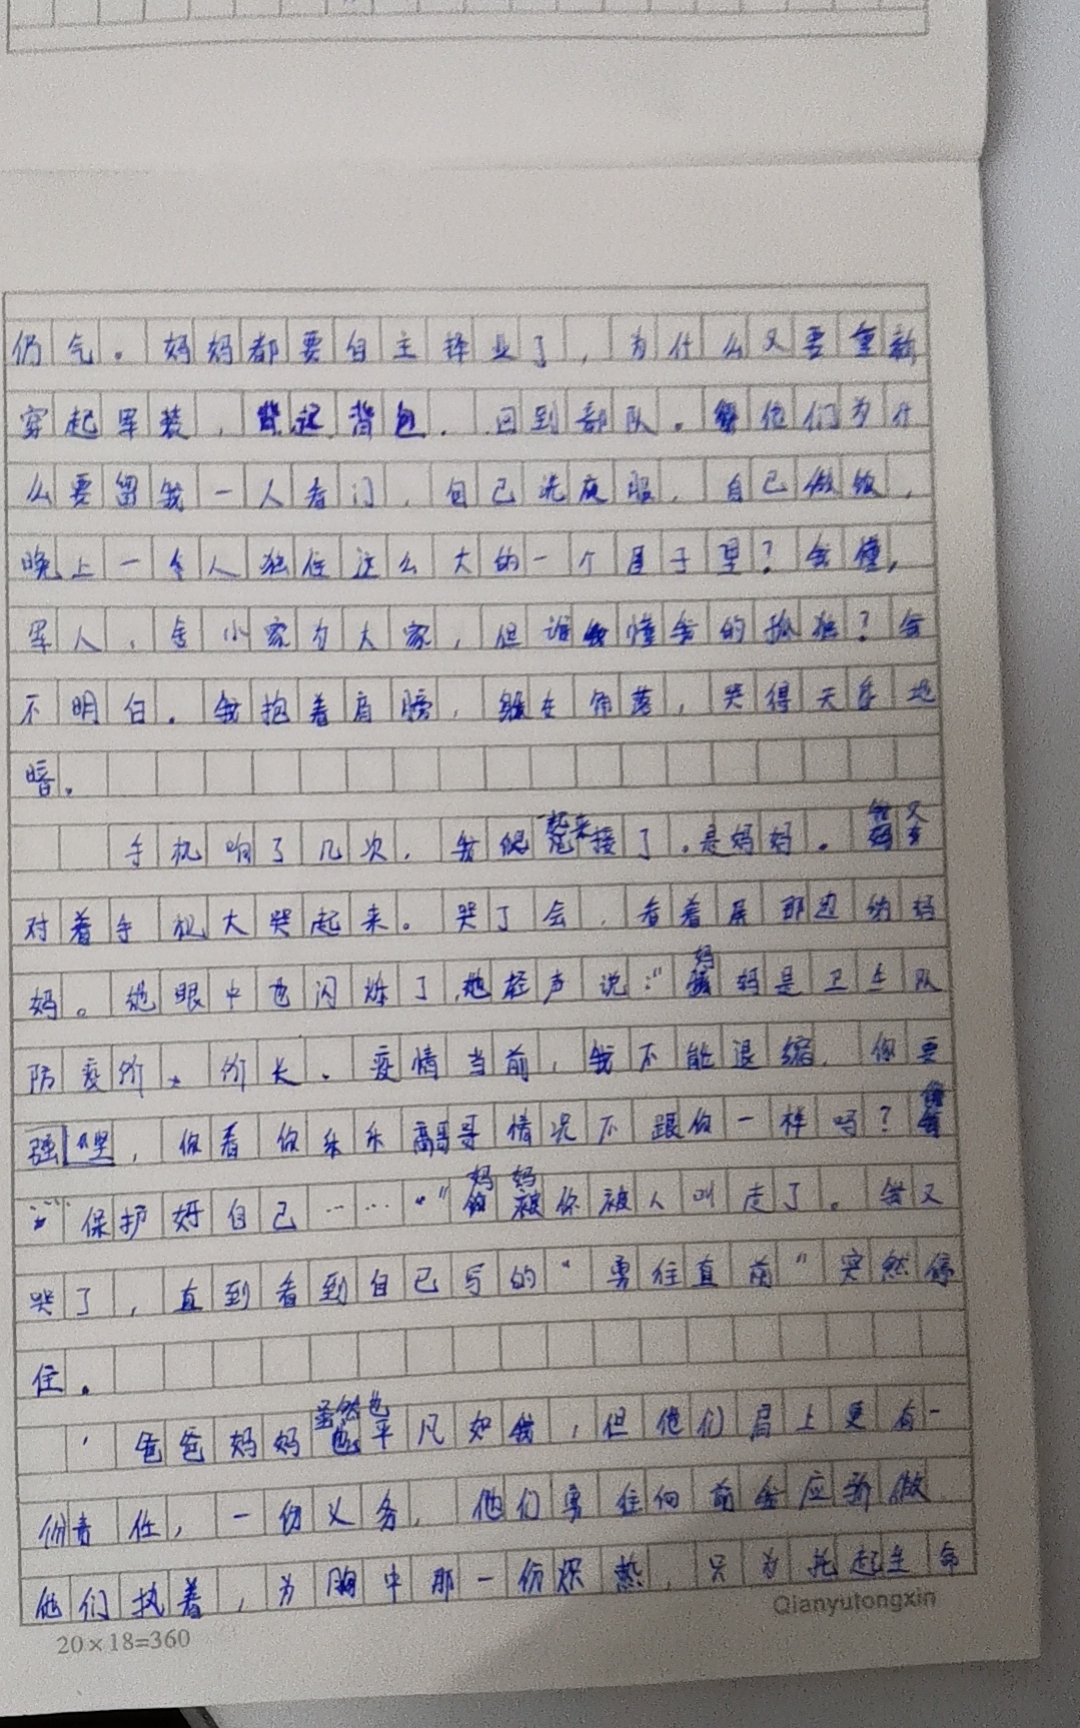 仍气。妈妈都要自主择业了，为什么又要重新
穿起军装，背起背包．回到部队。他们为什
么要留我一人看门，自己洗衣服，自己做饭，
晚上一个人独住这么大的一个屋子里？我懂，
军人，舍小家为大家，但谁懂我的孤独？我
不明白。我抱着肩膀，缩在角落，哭得天昏地
暗。
手机响了几次，我爬起来接了．是妈妈。我又
对着手机大哭起来。哭了会，看着屏那边的妈
妈。她眼中也闪烁了，她轻声说："妈妈是卫生队
防疫所、所长．疫情当前，我不能退缩．你要
坚强，你看你乐乐哥哥情况不跟你一样吗？
……保护好自己……"妈妈被人叫走了。我又
哭了，直到看到自己写的"勇往直前"突然停
住。
爸爸妈妈虽然也平凡如我，但他们肩上更有一
份责任，一份义务，他们勇往向前我应新做
他们执着，为胸中那一份炽热，只为托起生命
Qianyutongxin
20×18=360